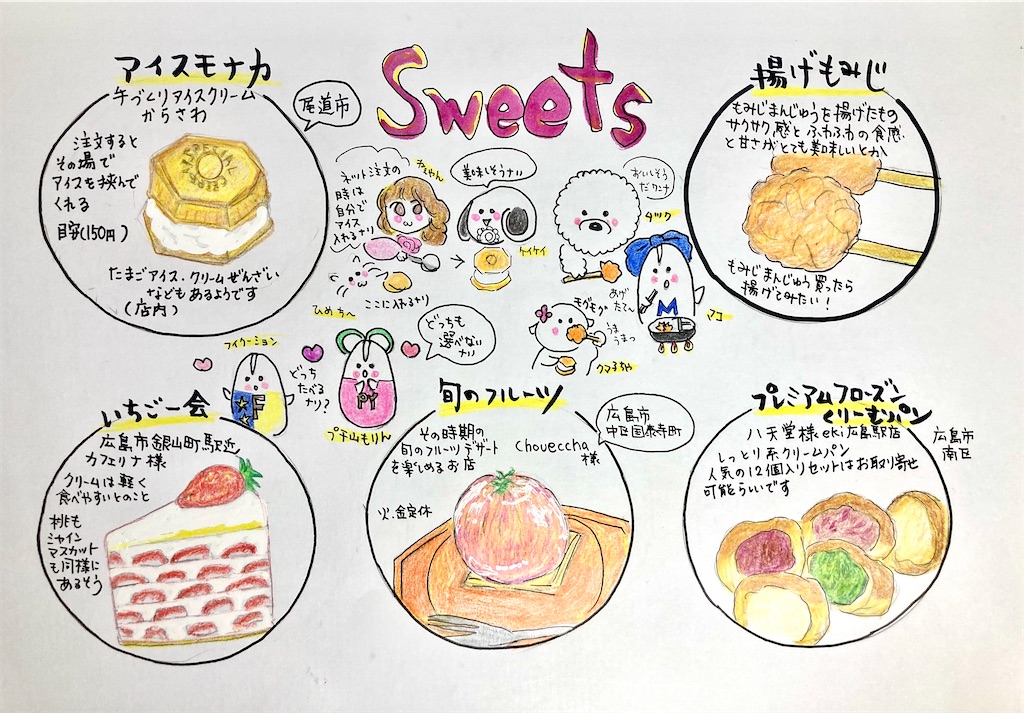 Sweets
アイスモナカ
手づくりアイスクリーム
からさわ
尾道市
注文すると
その場で
アイスを挟んで
くれる
目安(150円)
たまごアイス、クリームぜんざい
などもあるようです
(店内)
ネット注文の
時は
自分で
アイス
入れるナリ
美味しそうナリ
ケイケイ
ここに入れるナリ
ひめちへ
おいしそう
だワニナ
ダツク
あげ
たて〜
マコ
M
モグモグ
うま
うまっ
クマ子ちゃ
揚げもみじ
もみじまんじゅうを揚げたもの
サクサク感とふわふわの食感
と甘さがとても美味しいとか
もみじまんじゅう買ったら
揚げてみたい!
フイケーション
F
どっち
たべる
ナリ?
PY
プチ山もりん
どっちも
選べない
ナリ
いちご一会
広島市銀山町駅近
カフェリナ様
クリームは軽く
食べやすいとのこと
桃も
シャイン
マスカット
も同様に
あるそう
旬のフルーツ
広島市
中区国泰寺町
その時期の
旬のフルーツデザート
を楽しめるお店
choueccha
様
火、金定休
プレミアムフローズン
くりーむパン
八天堂様 eki広島駅店
広島市
南区
しっとり系クリームパン
人気の12個入りセットはお取り寄せ
可能らしいです